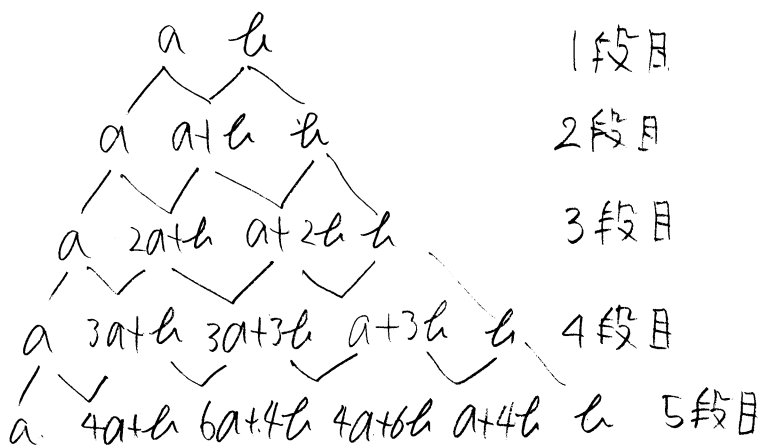 a b 1段目
a a+b b 2段目
a 2a+b a+2b b 3段目
a 3a+b 3a+3b a+3b b 4段目
a 4a+b 6a+4b 4a+6b a+4b b 5段目